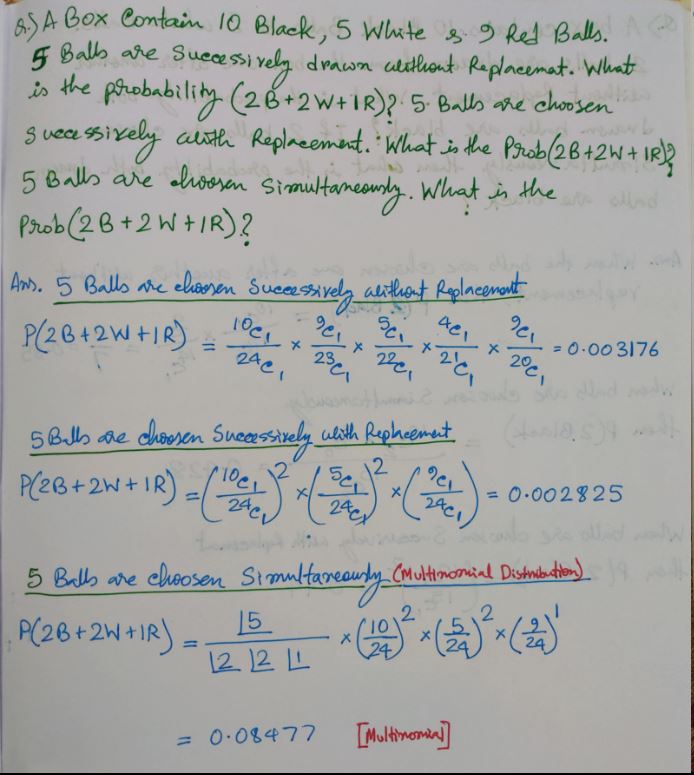 Q.) A Box Contain 10 Black, 5 White & 9 Red Balls.
5 Balls are Successively drawn without Replacemat. What
is the probability (2B+2W+1R)? 5 Balls are choosen
Successively with Replacement. What is the Prob(2B+2W+1R)?
5 Balls are choosen Simultaneously. What is the
Prob(2B+2W+1R)?
Ans. 5 Balls are choosen Successively without Replacement
P(2B+2W+1R) = 10c1/24c1 × 9c1/23c1 × 5c1/22c1 × 4c1/21c1 × 9c1/20c1 = 0.003176
5 Balls are choosen Successively with Replacement
P(2B+2W+1R) = (10c1/24c1)² × (5c1/24c1)² × (9c1/24c1) = 0.002825
5 Balls are choosen Simultaneously (Multinomial Distribution)
P(2B+2W+1R) = |5 / |2 |2 |1 × (10/24)² × (5/24)² × (9/24)¹
= 0.08477 [Multinomial]